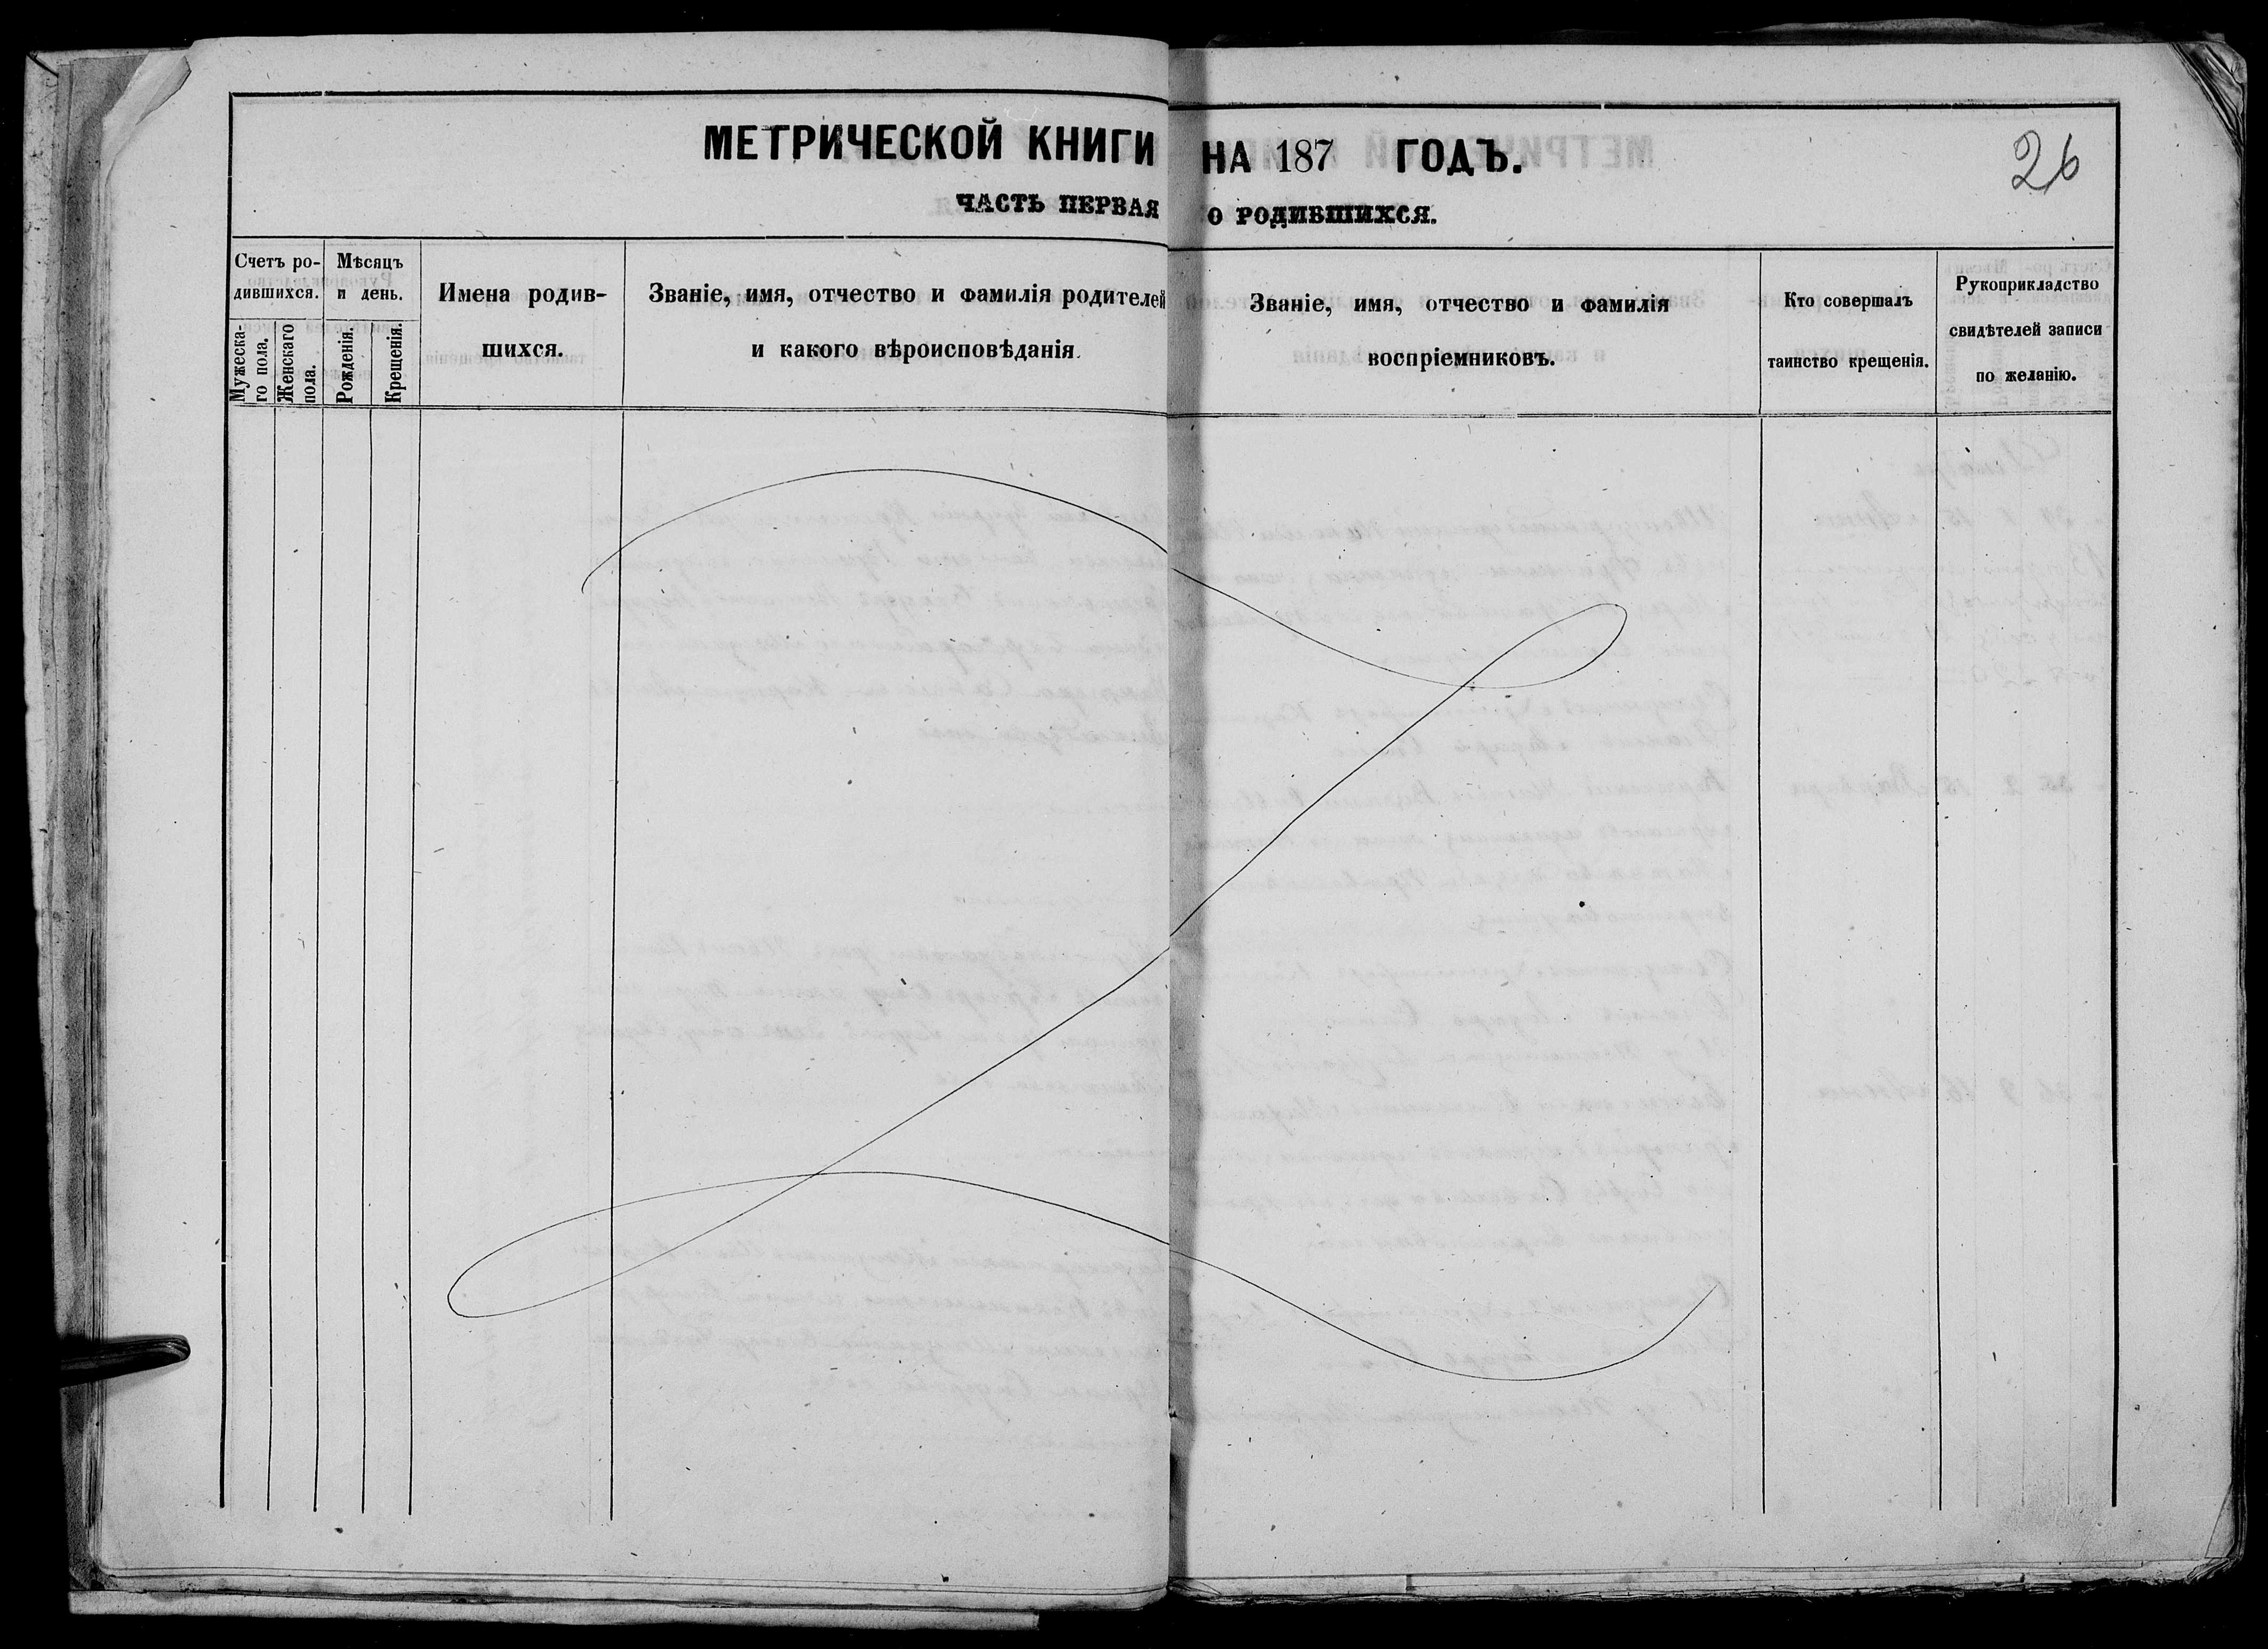 МЕТРИЧЕСКОЙ КНИГИ НА 187 ГОДЪ.
26
ЧАСТЬ ПЕРВАЯ О РОДИВШИХСЯ.
Счетъ ро-
дившихся.
Мужеска-
го пола.
Женскаго
пола.
Мѣсяцъ
и день.
Рожденія.
Крещенія.
Имена родив-
шихся.
Званіе, имя, отчество и фамилія родителей
и какого вѣроисповѣданія.
Званіе, имя, отчество и фамилія
воспріемниковъ.
Кто совершалъ
таинство крещенія.
Рукоприкладство
свидѣтелей записи
по желанію.